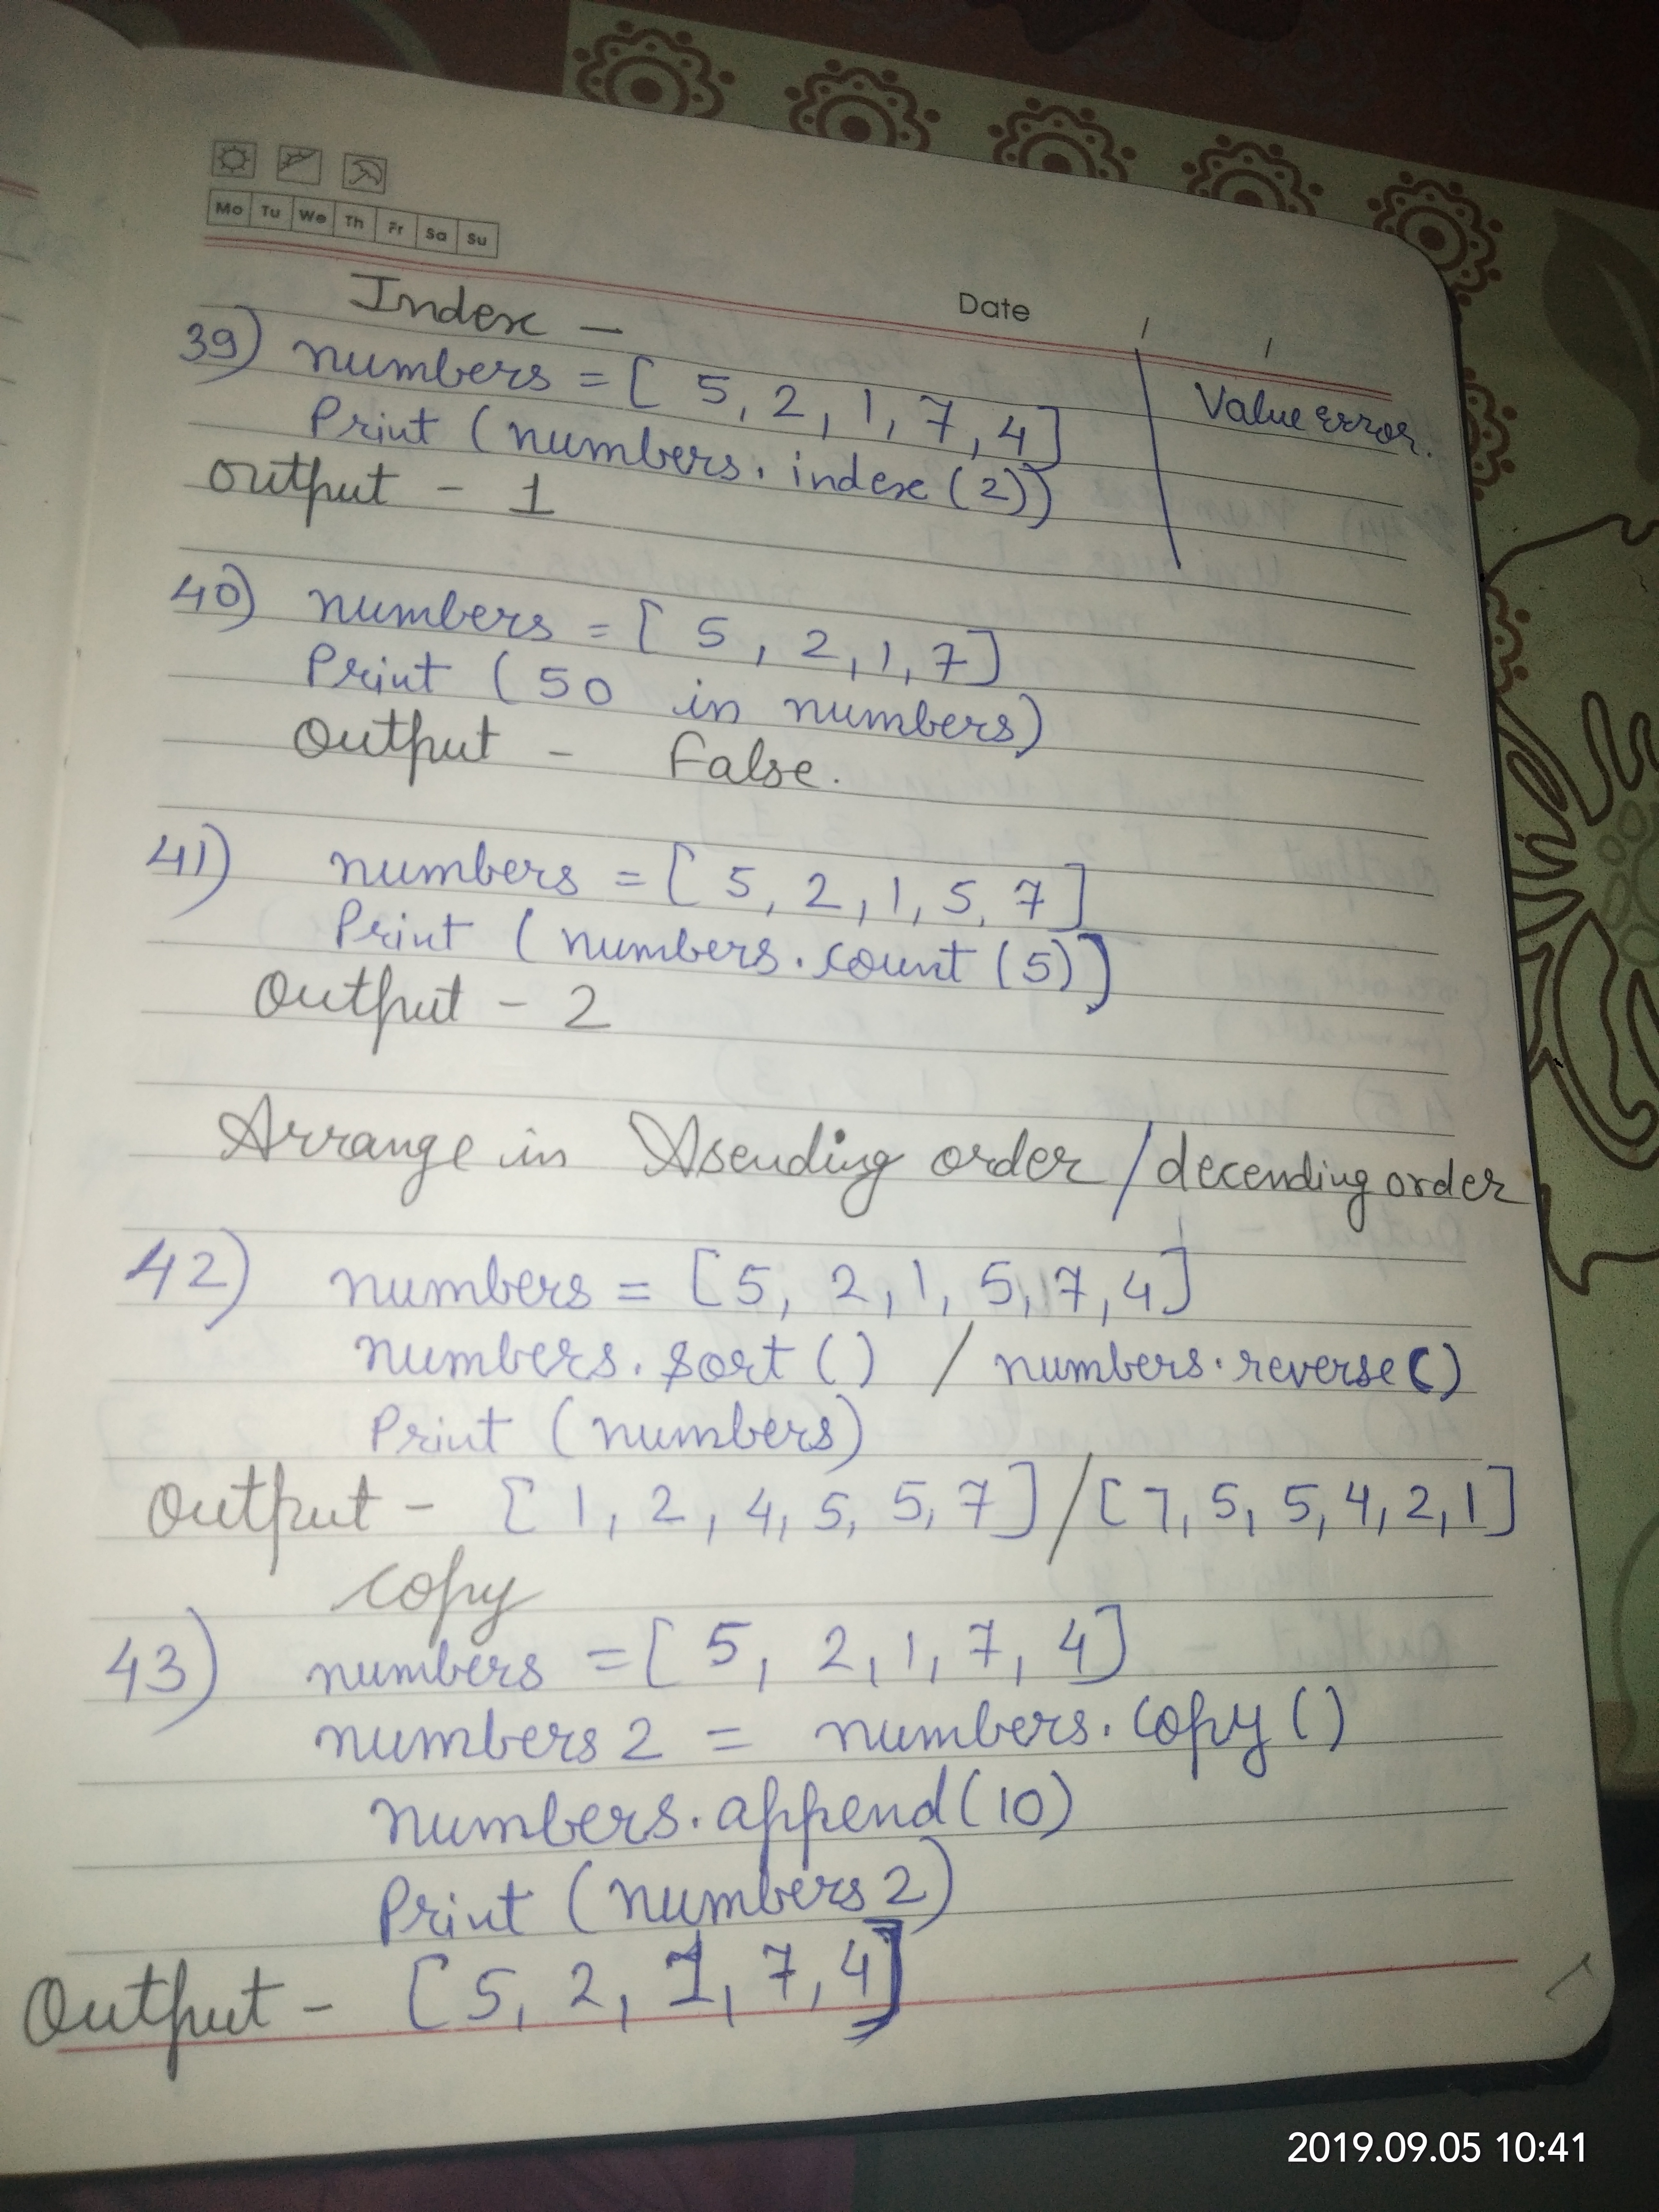 Mo Tu We Th Fr Sa Su
Date / /
Index -
39) numbers = [ 5, 2, 1, 7, 4]
Value Error.
Print (numbers. index (2))
output - 1
40) numbers = [ 5, 2, 1, 7]
Print ( 50 in numbers)
Output - False.
41) numbers = [ 5, 2, 1, 5, 7 ]
Print ( numbers. count (5))
Output - 2
Arrange in Asending order / decending order
42) numbers = [5, 2, 1, 5, 7, 4]
numbers. sort () / numbers. reverse ()
Print (numbers)
Output - [ 1, 2, 4, 5, 5, 7 ] / [ 7, 5, 5, 4, 2, 1 ]
copy
43) numbers = [ 5, 2, 1, 7, 4]
numbers 2 = numbers. copy ()
numbers. append (10)
Print (numbers 2)
Output - [ 5, 2, 1, 7, 4]
2019.09.05 10:41